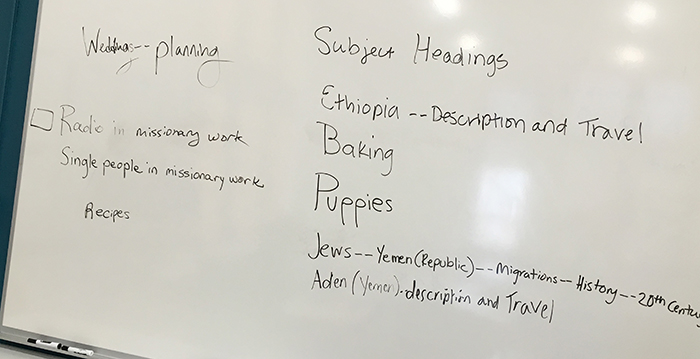 Weddings--planning
Radio in missionary work
Single people in missionary work
Recipes
Subject Headings
Ethiopia--Description and Travel
Baking
Puppies
Jews--Yemen(Republic)--Migrations--History--20th Century
Aden (Yemen).description and Travel